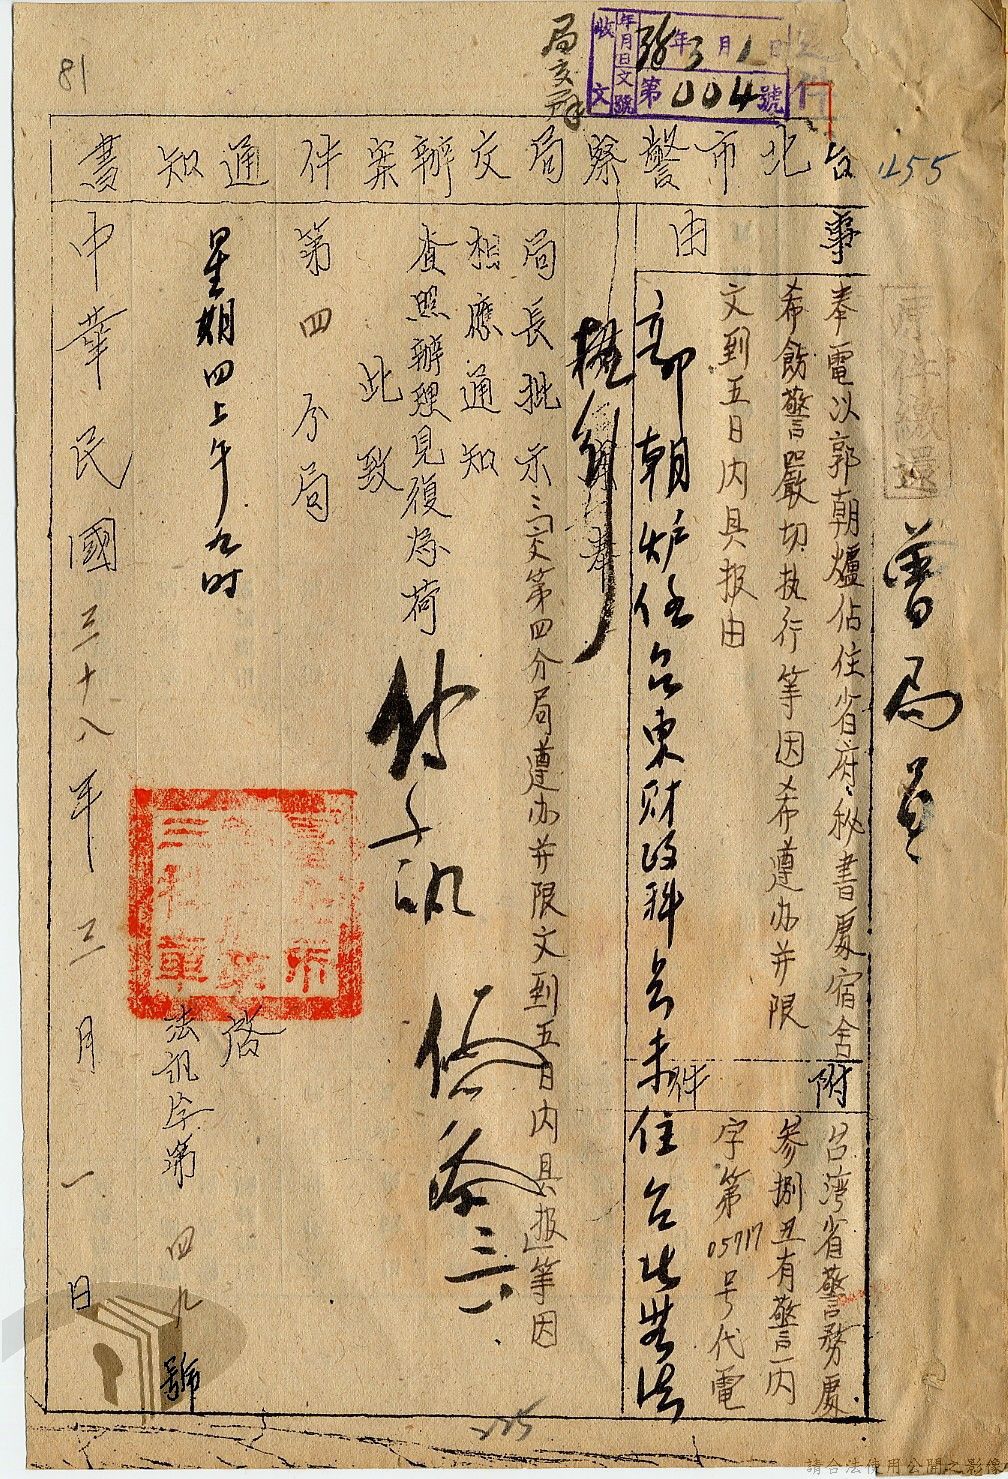 81
局交辦
收文
年月日文號
38年3月1日
第004號
台北市警察局交辦案件通知書
455
曾局員
事由
奉電以郭朝爐佔住省府秘書處宿舍
希飭警嚴切执行等因希遵办并限
文到五日内具报由
附件
台湾省警務處
参捌丑有警丙
字第05717号代電
郭朝炉任台東財政科長未住台北無法
奉
局長批示：交第四分局遵办并限文到五日内具报等因
相應通知
查照辦理見復為荷
此致
第四分局
傳訊
三 八
星期四上午九时
啓
法訊字第四九號
中華民國三十八年三月一日
請合法使用公開之影像